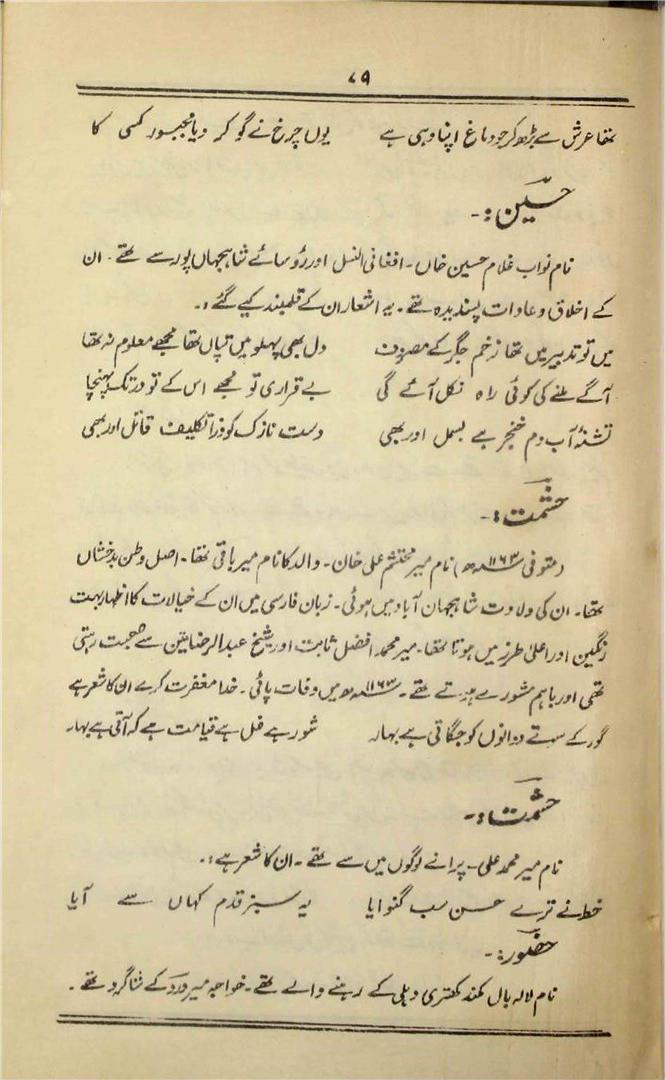 ۷۹
تھا عرش سے بڑھ کر جو دماغ اپنا وہی ہے یوں چرخ نے گو کر دیا مجبور کسی کا
حسین:-
نام نواب غلام حسین خاں۔ افغانی النسل اور رؤسائے شاہجہاں پور سے تھے۔ ان
کے اخلاق و عادات پسندیدہ تھے۔ یہ اشعار ان کے قلمبند کیے گئے:۔
میں تو تدبیر میں تھا زخم جگر کے مصروف دل بھی پہلو میں تپاں تھا مجھے معلوم نہ تھا
آگے ملنے کی کوئی راہ نکل آئے گی بے قراری تو مجھے اس کے تو در تک پہنچا
تشنۂ آب دم خنجر ہے بسمل اور بھی دست نازک کو ذرا تکلیف قاتل اور بھی
حشمت:-
(متوفی ۱۱۶۳ھ) نام میر محتشم علی خان۔ والد کا نام میر باقی تھا۔ اصل وطن بدخشاں
تھا۔ ان کی ولادت شاہجہان آباد میں ہوئی۔ زبان فارسی میں ان کے خیالات کا اظہار بہت
رنگین اور اعلیٰ طرز میں ہوتا تھا۔ میر محمد افضل ثابت اور شیخ عبدالرضا متین سے صحبت رہتی
تھی اور باہم مشورے ہوتے تھے۔ ۱۱۶۳ھ میں وفات پائی۔ خدا مغفرت کرے ان کا شعر ہے
گور کے سوتے دوانوں کو جگاتی ہے بہار شور ہے غل ہے قیامت ہے کہ آتی ہے بہار
حشمت:-
نام میر محمد علی۔ پرانے لوگوں میں سے تھے۔ ان کا شعر ہے:۔
خط نے ترے حسن سب گنوایا یہ سبز قدم کہاں سے آیا
حضور:-
نام لالہ بال مکند کھتری دہلی کے رہنے والے تھے۔ خواجہ میر درد کے شاگرد تھے۔